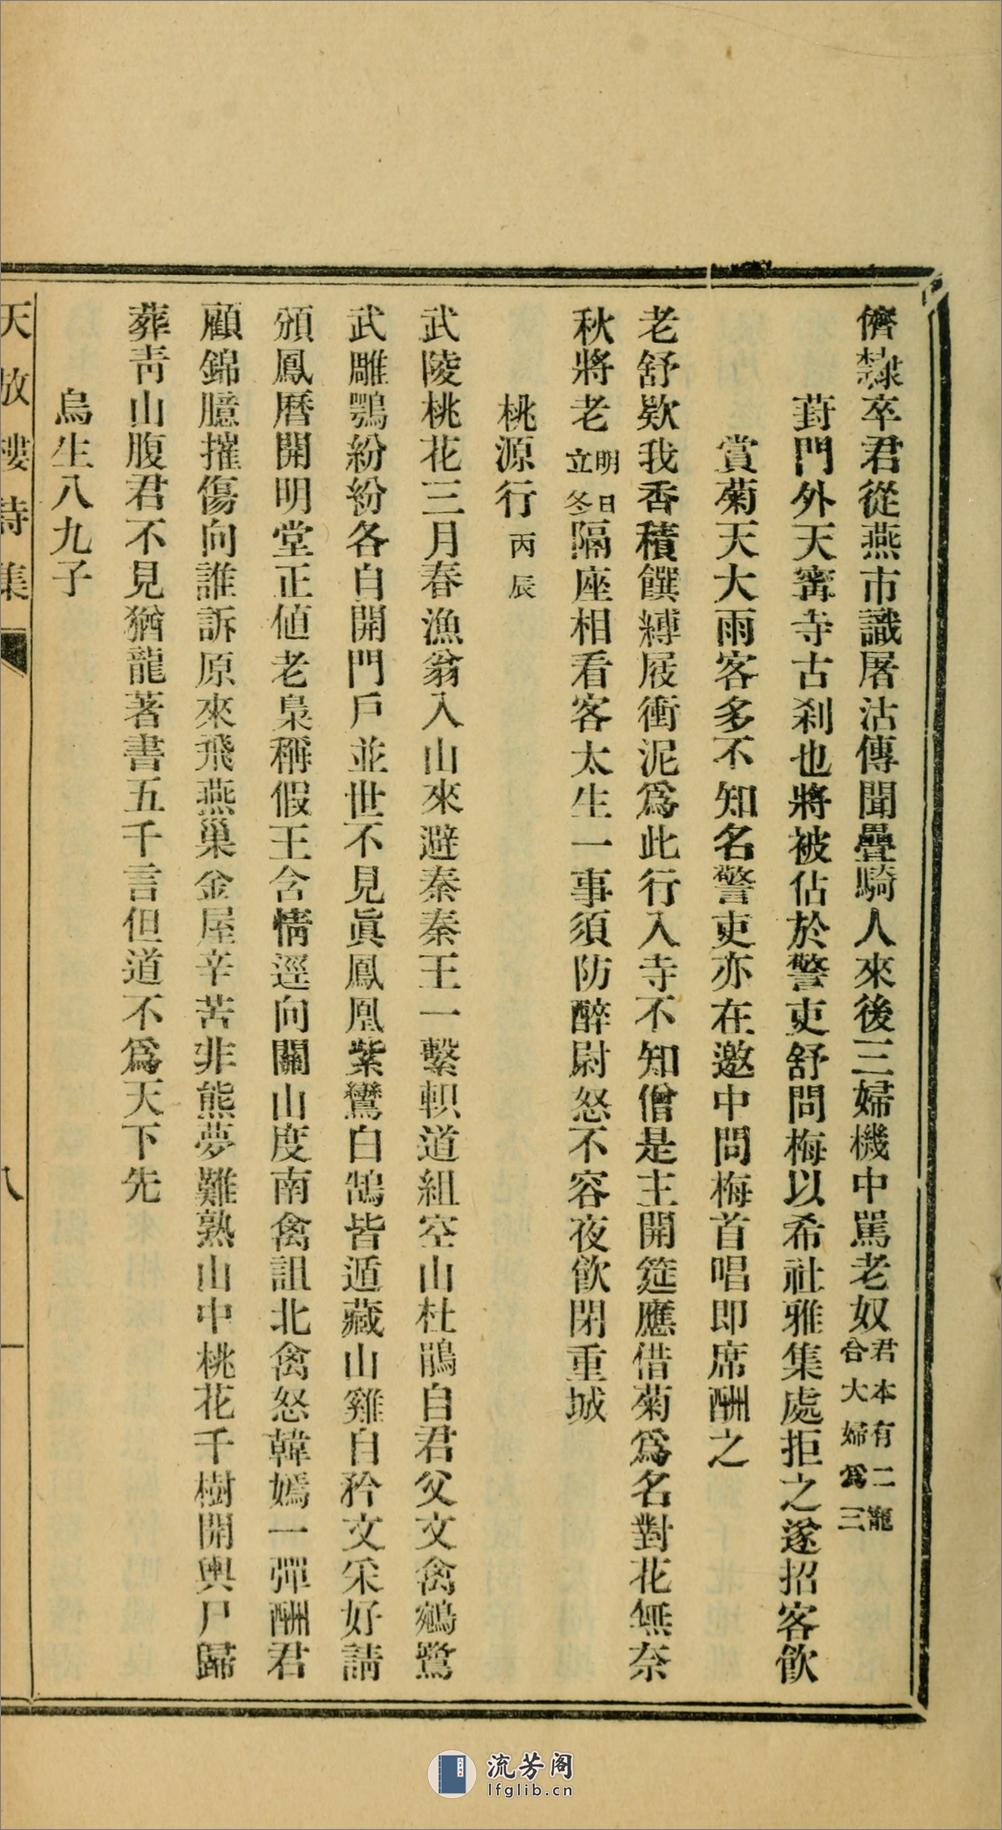 儕隸卒君從燕市識屠沽傳聞疊騎人來後三婦機中罵老奴君本有二寵合大婦爲三
葑門外天寗寺古剎也將被佔於警吏舒問梅以希社雅集處拒之遂招客飲
賞菊天大雨客多不知名警吏亦在邀中問梅首唱即席酬之
老舒欵我香積饌縳屐衝泥爲此行入寺不知僧是主開筵應借菊爲名對花無奈
秋將老明日立冬隔座相看客太生一事須防醉尉怒不容夜飲閉重城
桃源行丙辰
武陵桃花三月春漁翁入山來避秦秦王一繫軹道組空山杜鵑自君父文禽鵷鷺
武雕鶚紛紛各自開門戶並世不見眞鳳凰紫鸞白鵠皆遁藏山雞自矜文采好請
頒鳳曆開明堂正値老梟稱假王含情逕向關山度南禽詛北禽怒韓嫣一彈酬君
顧錦臆摧傷向誰訴原來飛燕巢金屋辛苦非熊夢難熟山中桃花千樹開輿尸歸
葬靑山腹君不見猶龍著書五千言但道不爲天下先
烏生八九子
天放樓詩集
八
一
流芳阁
lfglib.cn